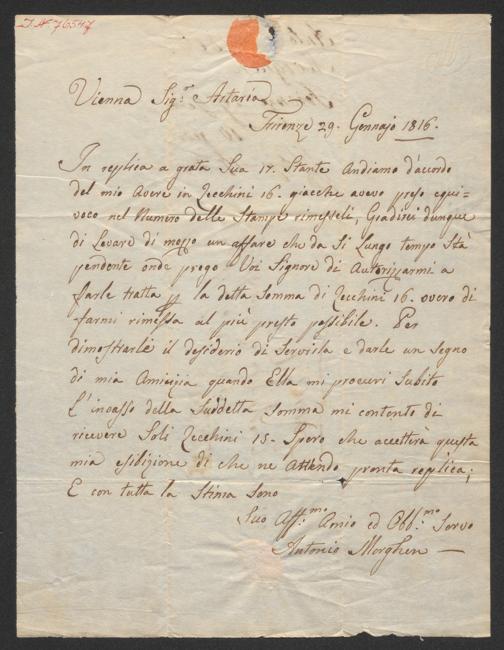 I.N. 76547
Vienna Sig.r Artaria
Firenze 29. Gennajo 1816.
In replica a grata Sua 17. Stante Andiamo d'acordo
del mio Avere in Zecchini 16. giacche avevo preso equi=
voco nel Numero delle Stampe rimesseli, Gradirei dunque
di Levare di mezzo un affare che da Si Lungo tempo Stà
pendente onde prego Voi Signore di Autorizzarmi a
farle tratta per la detta Somma di Zecchini 16. overo di
farmi rimessa al più presto possibile. Per
dimostrarle il desiderio di Servirla e darle un Segno
di mia Amicizia quando Ella mi procuri Subito
L'incasso della Suddetta Somma mi contento di
ricevere Soli Zecchini 15. Spero che accetterà questa
mia esibizione di che ne Attendo pronta replica;
E con tutta la Stima Sono
Suo Aff.mo Amio ed Obb.mo Servo
Antonio Morghen